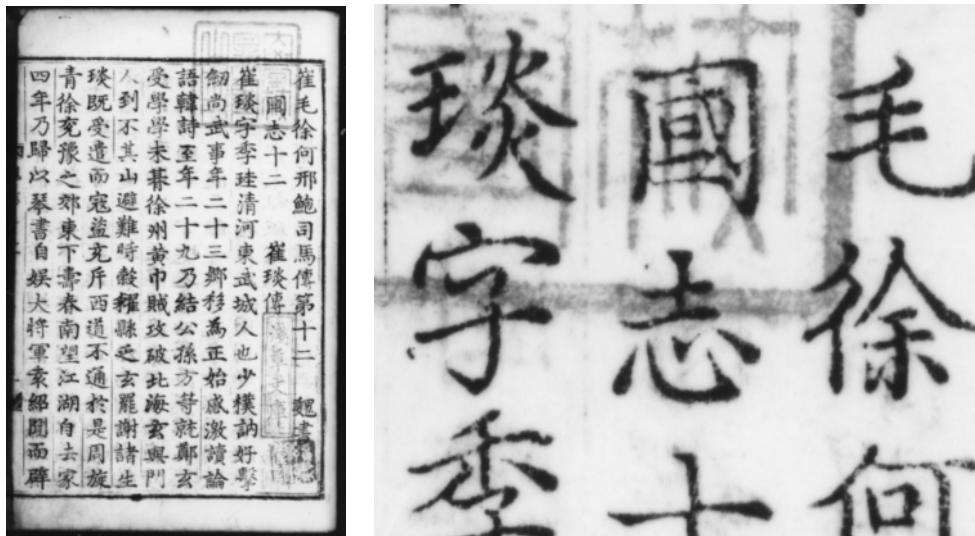 崔毛徐何邢鮑司馬傳第十二 魏書
國志十二 崔琰傳
崔琰字季珪清河東武城人也少樸訥好擊
劒尚武事年二十三鄉移為正始感激讀論
語韓詩至年二十九乃結公孫方等就鄭玄
受學學未朞徐州黄巾賊攻破北海玄與門
人到不其山避難時穀糴縣乏玄罷謝諸生
琰既受遣而宼盜充斥西道不通於是周旋
青徐兖豫之郊東下壽春南望江湖自去家
四年乃歸以琴書自娱大將軍袁紹聞而辟
毛徐何
國志十
琰字季